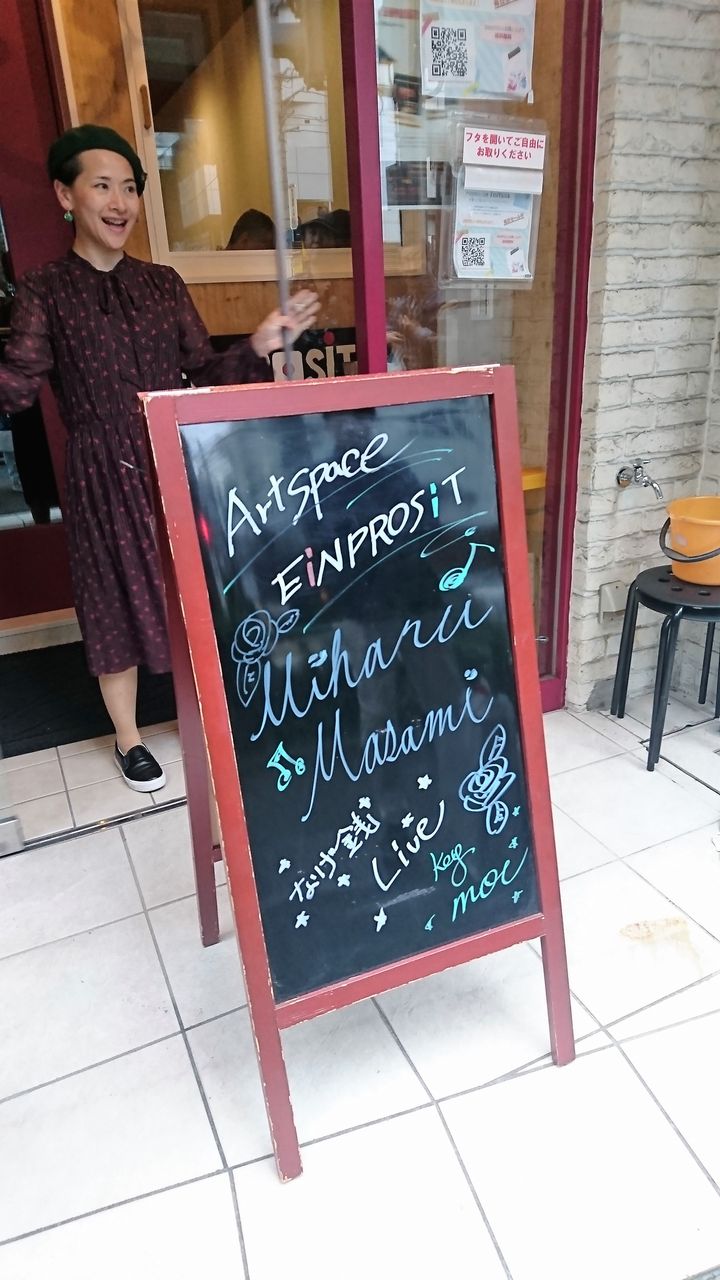 フタを開いてご自由に
お取りください
SiT
Artspace
EiNPROSiT
Miharu
Masami
なげ銭
Live
Key
moe